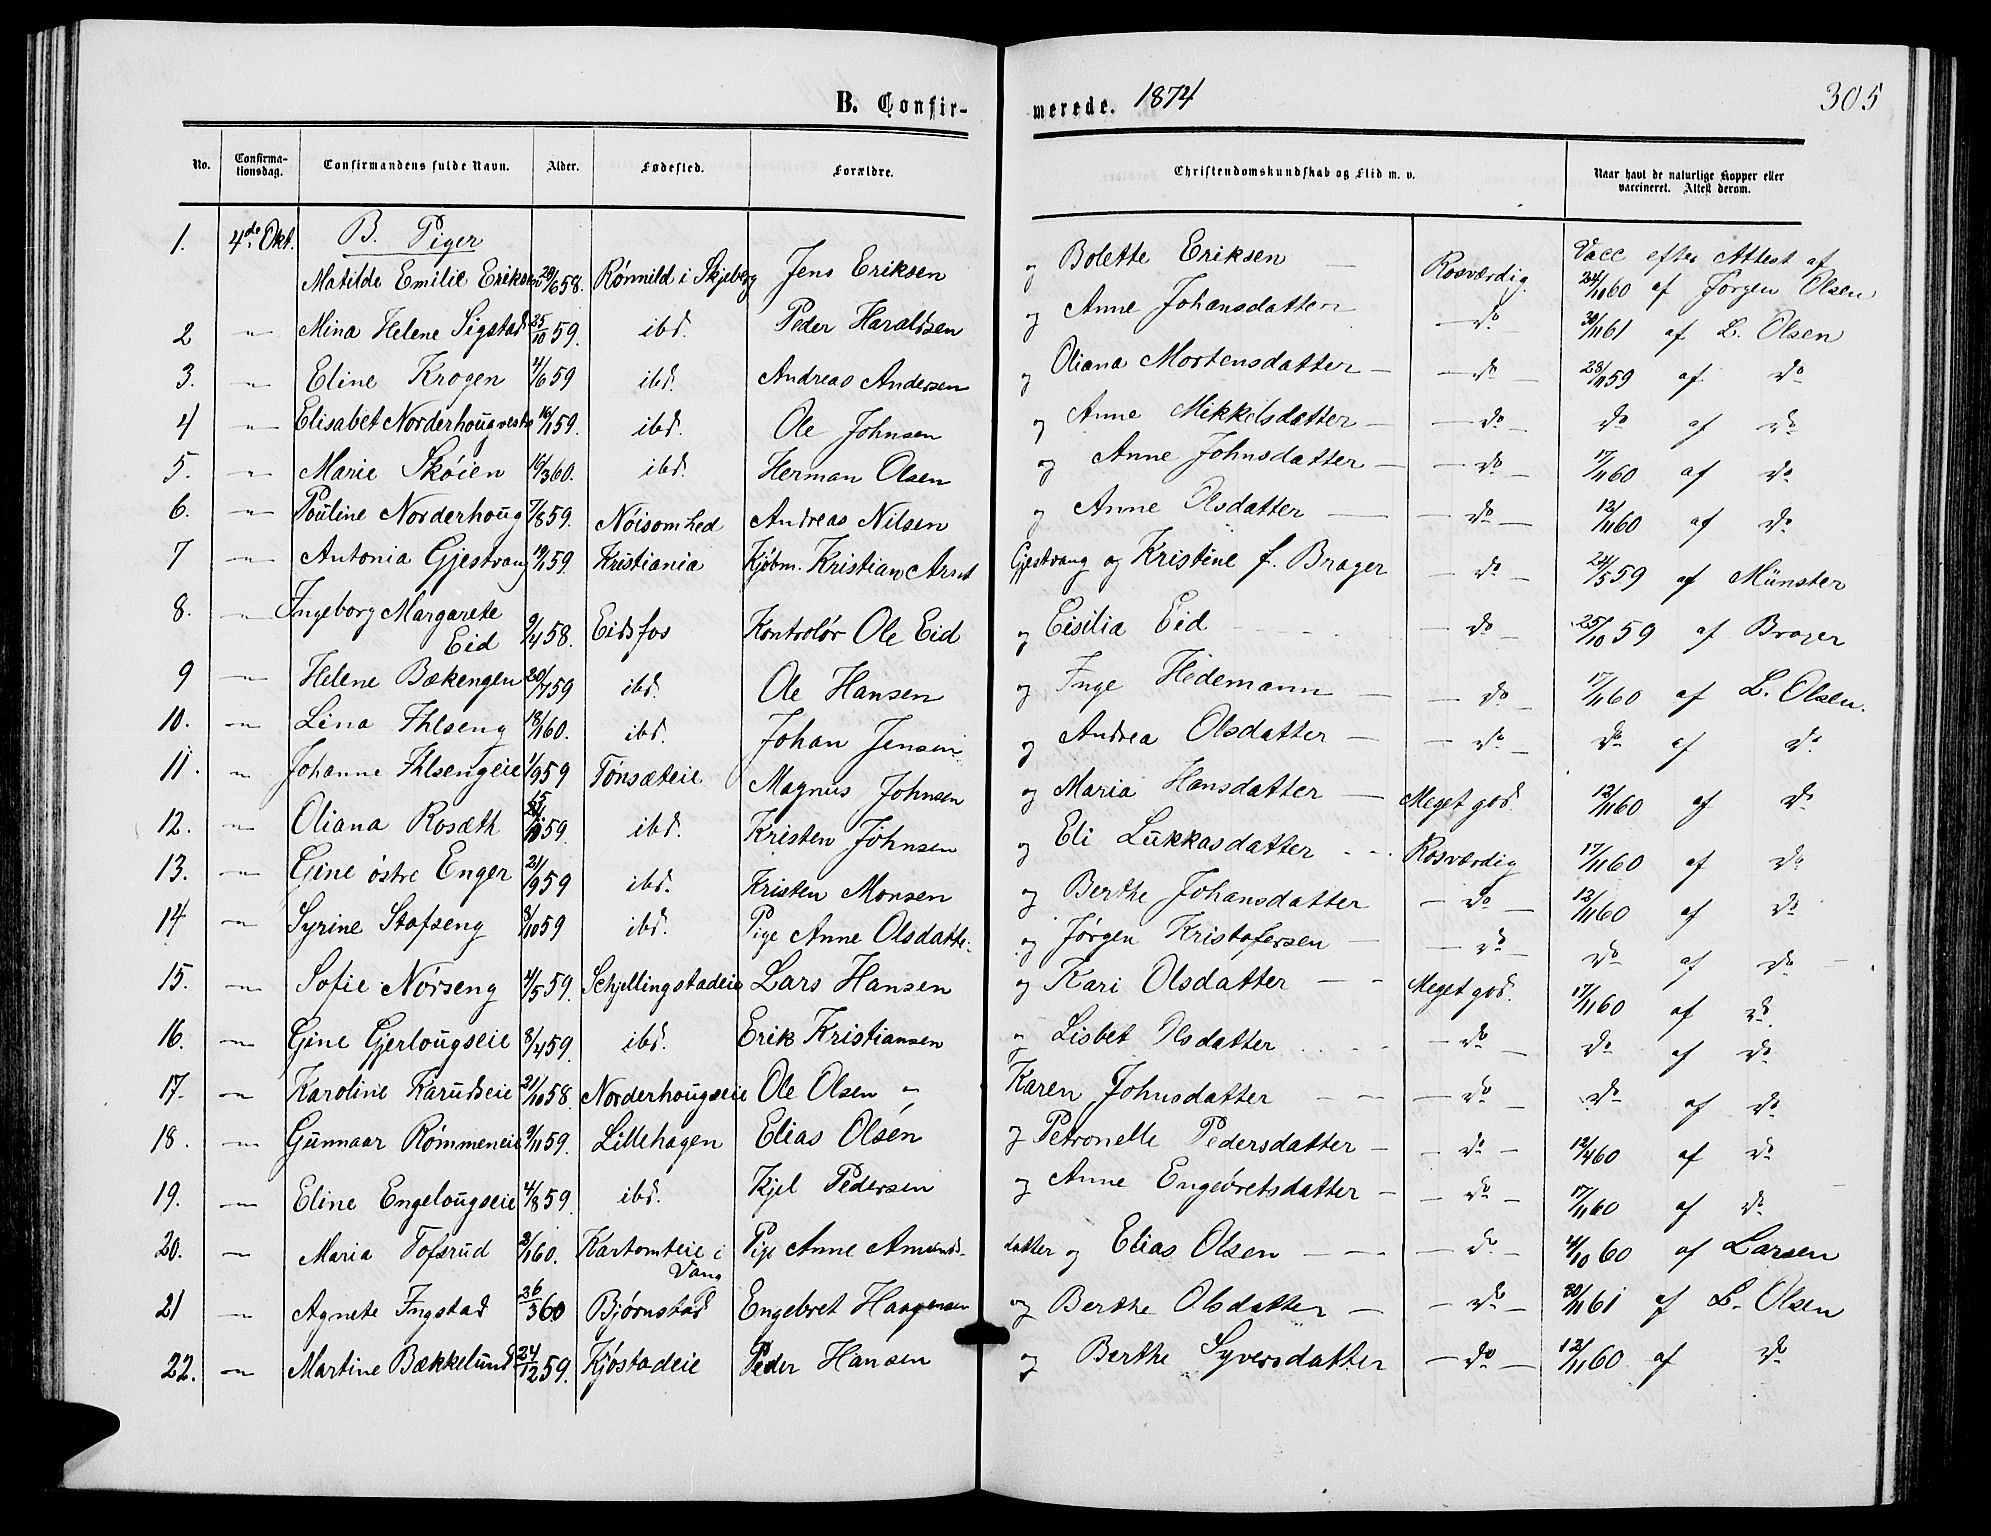 B. Confir-
merede. 1874
305
No. Confirma-tionsdag. Confirmandens fulde Navn. Alder. Fødested. Forældre. Christendomskundskab og Flid m. v. Naar havt de naturlige Kopper eller vaccineret. Attest derom.
1. 4de Okt. B. Piger
Matilde Emilie Eriksen 29/6 58. Rönnild i Skjeberg Jens Eriksen og Bolette Eriksen — Rosværdig Vacc efter Attest af 24/11 60 af Jörgen Olsen
2 — Mina Helene Sigstad 25/10 59. ibd. Peder Haraldsen og Anne Johansdatter — do 30/11 61 af L. Olsen
3. — Eline Krogen 21/6 59 ibd. Andreas Andersen og Oliana Mortensdatter — do — 28/11 59 af do
4 — Elisabet Norderhougvestre 16/11 59. ibd. Ole Johnsen og Anne Mikkelsdatter — do — do af do
5. — Marie Skóien 16/3 60. ibd. Herman Olsen og Anne Johnsdatter — do — 17/11 60 af do
6. — Pouline Norderhoug 7/8 59. Nóisomhed Andreas Nilsen og Anne Olsdatter — do — 12/11 60 af do
7 — Antonia Gjestvang 19/1 59. Kristiania Kjöbm. Kristian Arnt Gjestvang og Kristine f. Brager — do — 24/5 59 af Münster
8. — Ingeborg Margarete Eid 9/4 58. Eidsfos Kontrolör Ole Eid og Cisilia Eid — do — 25/10 59 af Brager
9 — Helene Bækengen 20/7 59 ibd. Ole Hansen og Inge Hedemann — do — 17/11 60 af L. Olsen.
10. — Lina Ihlseng 18/1 60. ibd. Johan Jensen og Andrea Olsdatter — do — do af do
11. — Johanne Ihlsengeie 1/9 59 Tonsæteie Magnus Johnsen og Maria Hansdatter — Meget god. 12/11 60 af do
12. — Oliana Rosæth 59. ibd. Kristen Johnsen og Eli Lukkasdatter — Rosværdig 17/11 60 af do
13. — Gine östre Enger 21/9 59 ibd. Kristen Monsen og Berthe Johansdatter — do — 12/11 60 af do
14 — Syrine Stafseng 8/10 59 ibd. Pige Anne Olsdatte. og Jørgen Kristofersen — do — do af do —
15. — Sofie Nörseng 4/5 59. Schjellingstadeie Lars Hansen og Kari Olsdatter — Meget god. 17/11 60 af do
16. — Gine Gjerlougseie 8/4 59. ibd. Erik Kristiansen og Lisbet Ilsdatter — do — do af do
17. — Karoline Karudseie 21/10 58. Norderhougseie Ole Olsen " Karen Johnsdatter — do — do af do
18. — Gunnaar Römmeneie 9/11 59. Lillehagen Elias Olsen og Petronelle Pedersdatter — do — 12/4 60 af do
19. — Eline Engelougseie 4/8 59. ibd. Kjel Pedersen og Anne Engevretsdatter — do — 17/11 60 af do
20. — Maria Tofsrud 3/1 60. Kartomteie i Vang Pige Anne Amunds-datter og Elias Olsen — do — 4/10 60 af Larsen
21 — Agnete Ingstad 26/3 60 Bjørnstad Engebret Haagensen og Berthe Olsdatter — do — 30/11 61 af L. Olsen
22. — Martine Bækkelund 24/12 59. Kjóstadeie Peder Hansen og Berthe Syversdatter — do — 12/11 60 af do